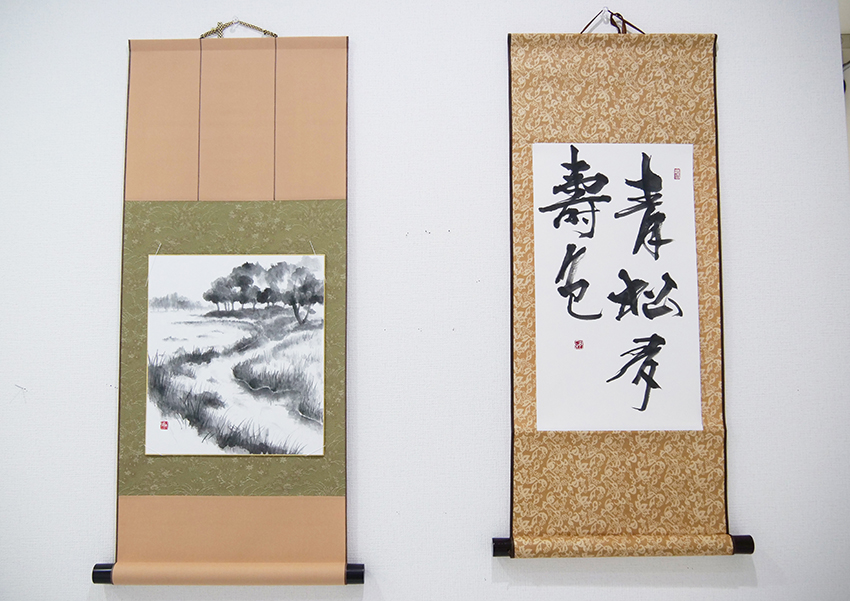 青松多
壽色